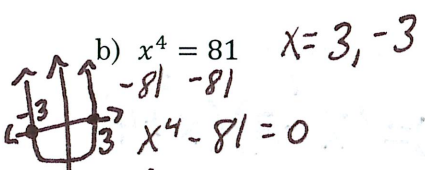 b) x⁴ = 81 x = 3, -3
-81 -81
x⁴ - 81 = 0
-3
3